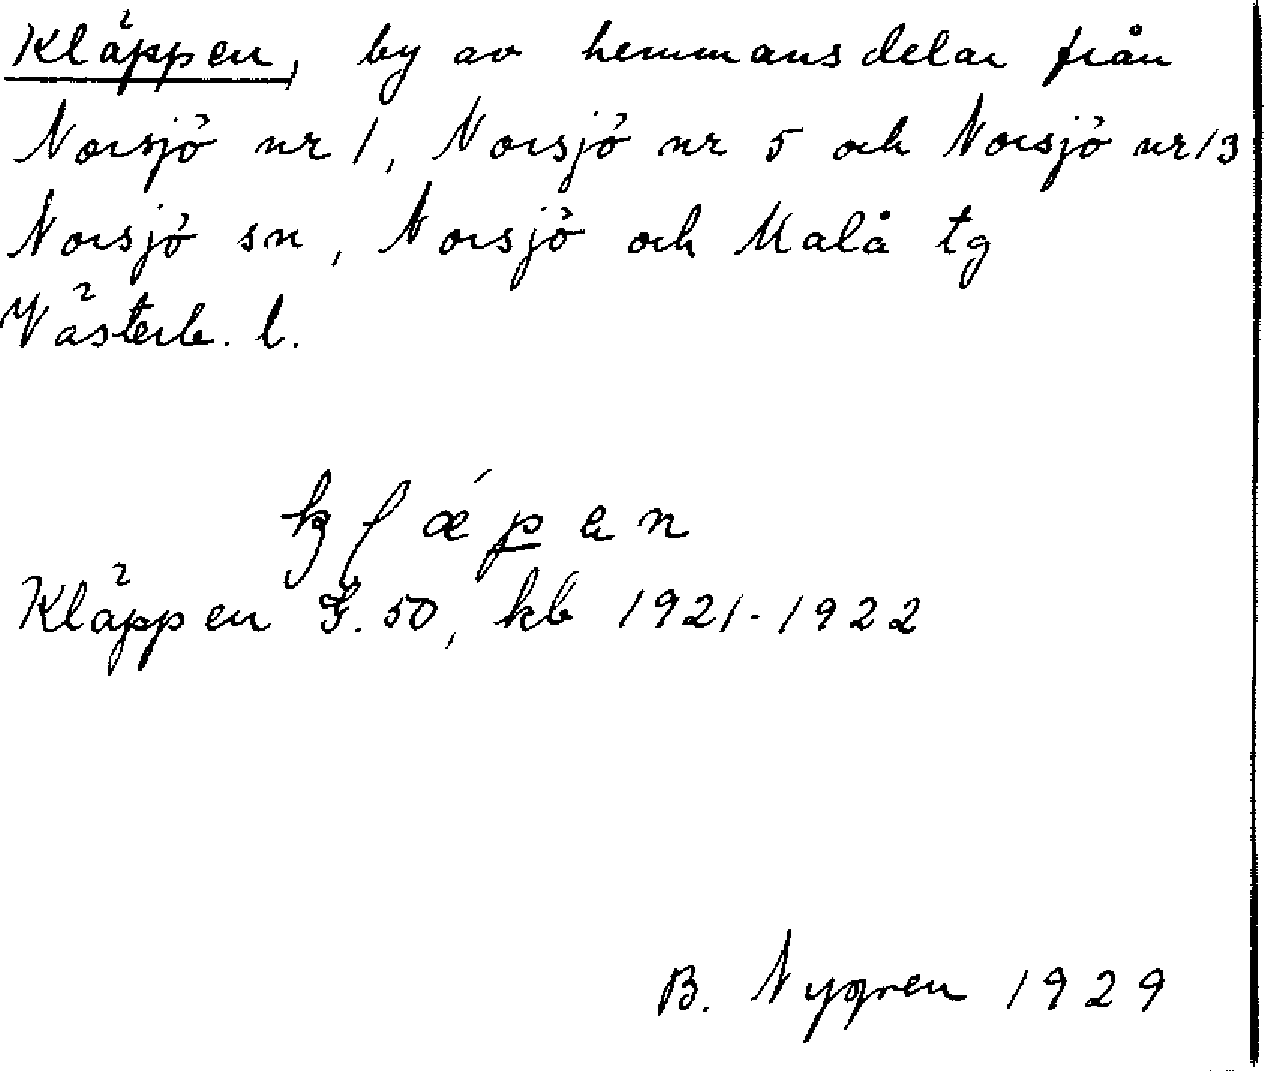 Kläppen, by av hemmansdelar från
Norsjö nr 1, Norsjö nr 5 och Norsjö nr 13
Norsjö sn, Norsjö och Malå tg
Västerb. l.
Kläppen F. 50, kb 1921-1922
B. Nygren 1929